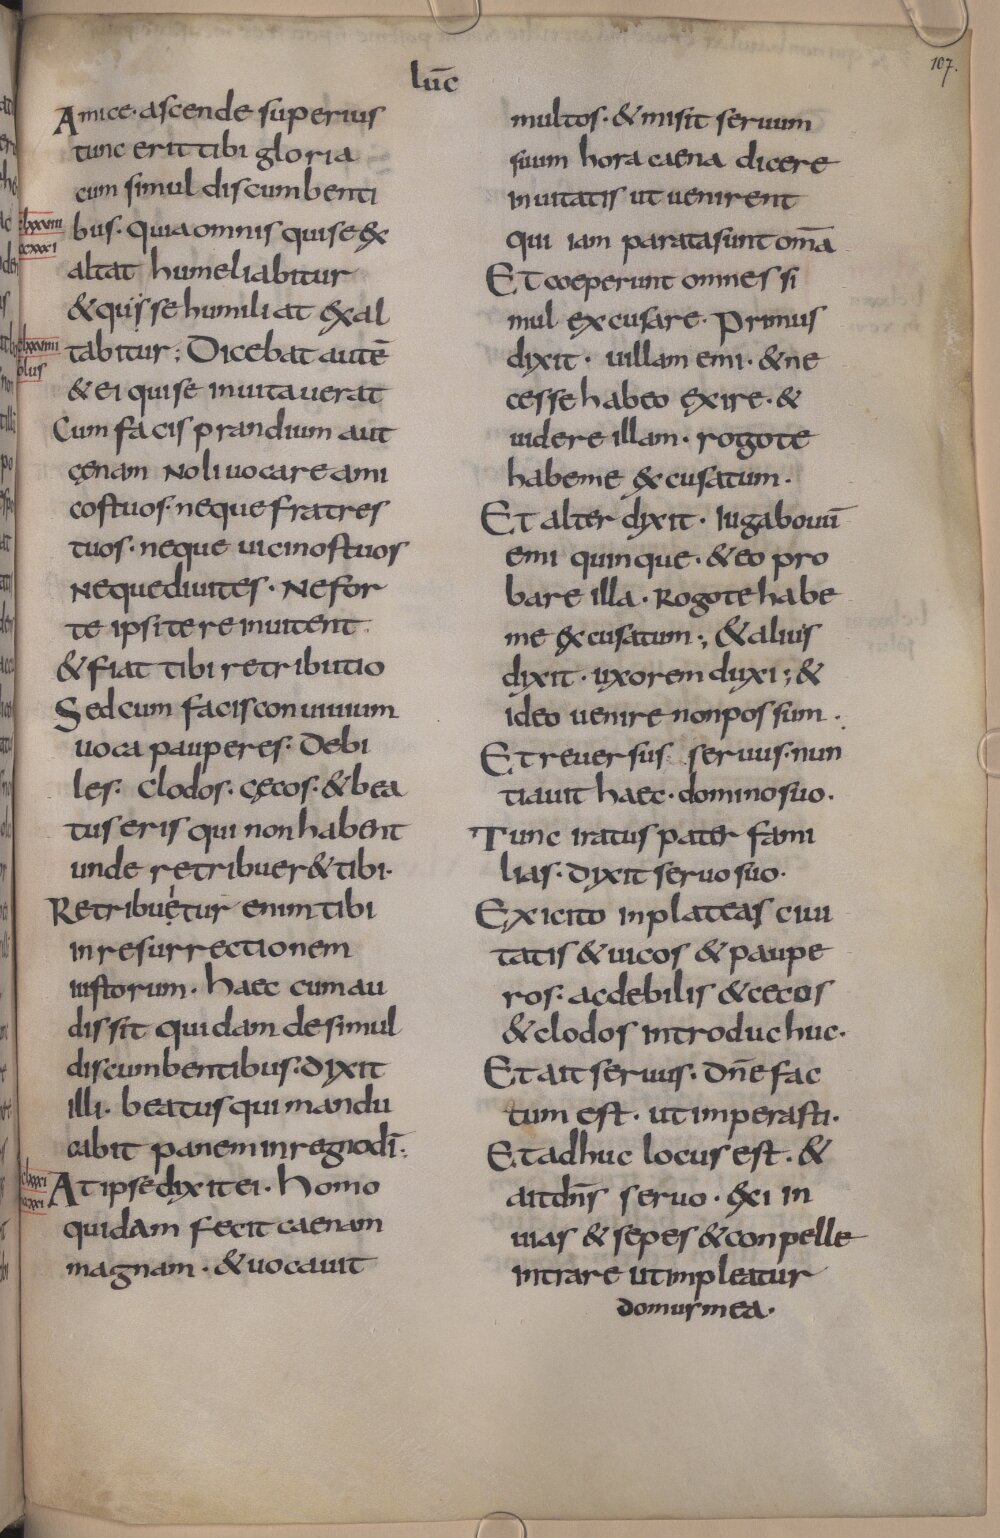 107.
lūc
Amice· ascende superius
tunc erit tibi gloria
cum simul discumbenti
bus· quia omnis qui se ex
altat humeliabitur
& qui se humiliat exal
tabitur; Dicebat autē
& ei qui se inuitauerat
Cum facis prandium aut
cęnam noli uocare ami
cos tuos· neque fratres
tuos· neque uicinos tuos
neque diuites· ne for
te ipsi te reinuitent
& fiat tibi retributio
Sed cum facis conuiuium
uoca pauperes· debi
les· clodos· cęcos· & bea
tus eris qui non habent
unde retribuer& tibi·
Retribuetur enim tibi
in resurrectionem
iustorum· haec cum au
dissit quidam de simul
discumbentibus· dixit
illi· beatus qui mandu
cabit panem in regno dī·
At ipse dixit ei· homo
quidam fecit caenam
magnam· & uocauit
multos· & misit seruum
suum hora caena dicere
inuitatis ut uenirent
qui iam parata sunt omā
Et coeperunt omnes si
mul excusare· Primus
dixit· uillam emi· & ne
cesse habeo exire· &
uidere illam· rogo te
habe me excusatum·
Et alter dixit· iuga bouū
emi quinque· & eo pro
bare illa· Rogo te habe
me excusatum; & alius
dixit· uxorem duxi; &
ideo uenire non possum·
Et reuersus seruus· nun
tiauit haec· domino suo·
Tunc iratus pater fami
lias· dixit seruo suo·
Exi cito in plateas ciui
tatis & uicos & paupe
ros· ac debilis & cecos
& clodos introduc huc·
Et ait seruus· dn̄e fac
tum est· ut imperasti·
Et adhuc locus est· &
ait dn̄s seruo· exi in
uias & sepes & conpelle
intrare ut impleatur
domus mea·